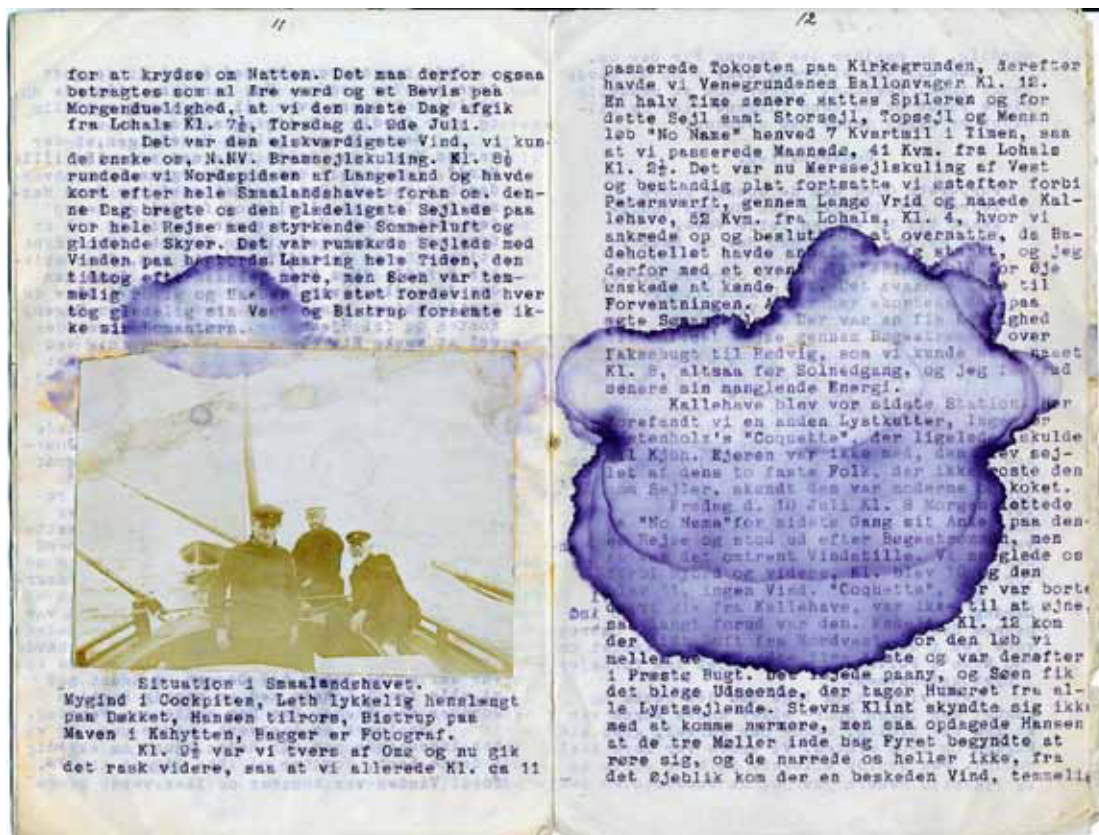 11
for at krydse om Natten. Det maa derfor ogsaa
betragtes som al Ære værd og et Bevis paa
Morgenduelighed, at vi den næste Dag afgik
fra Lohals Kl. 7½, Torsdag d. 9de Juli.
Det var den elskværdigste Vind, vi kun-
de ønske os, N.NV. Bramsejlskuling. Kl. 8½
rundede vi Nordspidsen af Langeland og havde
kort efter hele Smaalandshavet foran os. den-
ne Dag bragte os den glædeligste Sejlads paa
vor hele Rejse med styrkende Sommerluft og
glidende Skyer. Det var rumskøds Sejlads med
Vinden paa Laaring hele Tiden, den
tiltog mere, men Søen var tem-
melig og gik støt fordevind hver
tog glædelig sin Vagt og Bistrup forsømte ik-
ke sin
Situation i Smaalandshavet.
Mygind i Cockpiten, Leth lykkelig henslængt
paa Dækket, Hansen tilrors, Bistrup paa
Maven i Kahytten, Bagger er Fotograf.
Kl. 9½ var vi tvers af Omø og nu gik
det rask videre, saa at vi allerede Kl. ca 11
12
passerede Tokosten paa Kirkegrunden, derefter
havde vi Venegrundenes Ballonvager Kl. 12.
En halv Time senere sattes Spileren og for
dette Sejl samt Storsejl, Topsejl og Mesan
løb "No Name" henved 7 Kvartmil i Timen, saa
at vi passerede Masnedø, 41 Kvm. fra Lohals
Kl. 2½. Det var nu Merssejlskuling af Vest
og bestandig plat fortsatte vi østefter forbi
Petersværft, gennem Langø Vrid og naaede Kal-
lehave, 52 Kvm. fra Lohals, Kl. 4, hvor vi
ankrede op og at overnatte, da Ba-
dehotellet havde og jeg
derfor med et Øje
ønskede at kende til
Forventningen. paa
ægte Der var en
gennem over
Faksebugt til Rødvig, som vi kunde naaet
Kl. 8, altsaa før Solnedgang, og jeg
senere min manglende Energi.
Kallehave blev vor sidste Station, her
forefandt vi en anden Lystkutter,
"Coquette", der ligeledes skulde
til Kjbn. Ejeren var ikke med, den blev sej-
let af dens to faste Folk, der ikke roste den
som Sejler, skøndt den var moderne koket.
Fredag d. 10 Juli Kl. 8 Morgen lettede
"No Name" for sidste Gang sit Anker paa den-
ne Rejse og stod ud efter Bøgestrømmen, men
det omtrent Vindstille. Vi sneglede os
og videre, Kl. blev og den
ingen Vind. "Coquette", der var borte
fra Kallehave, var ikke til at øjne,
saa langt forud var den. Kl. 12 kom
der fra Nordvest, for den løb vi
mellem de og var derefter
i Præstø Bugt. Det paany, og Søen fik
det blege Udseende, der tager Humøret fra al-
le Lystsejlende. Stevns Klint skyndte sig ikke
med at komme nærmere, men saa opdagede Hansen
at de tre Møller inde bag Fyret begyndte at
røre sig, og de narrede os heller ikke, fra
det Øjeblik kom der en beskeden Vind, temmelig